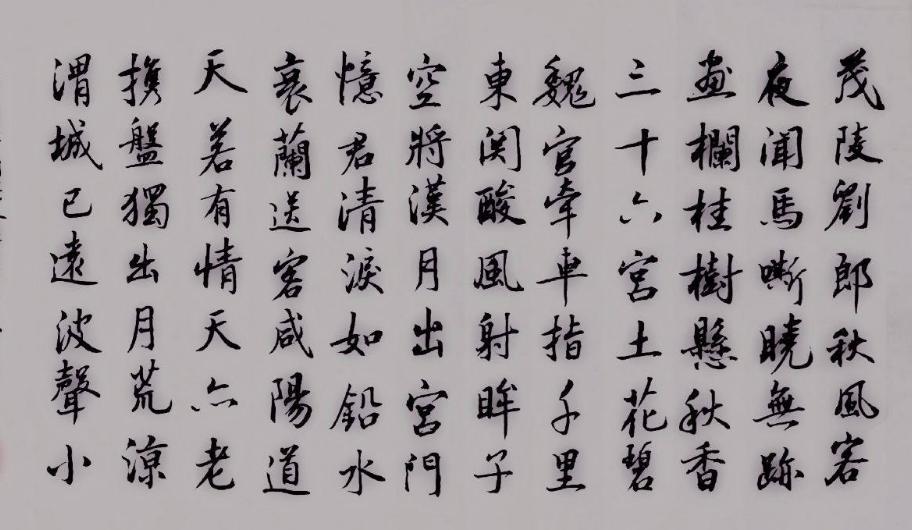 茂陵劉郎秋風客
夜聞馬嘶曉無跡
畫欄桂樹懸秋香
三十六宮土花碧
魏官牽車指千里
東関酸風射眸子
空將漢月出宮門
憶君清淚如鉛水
衰蘭送客咸陽道
天若有情天亦老
攜盤獨出月荒涼
渭城已遠波聲小